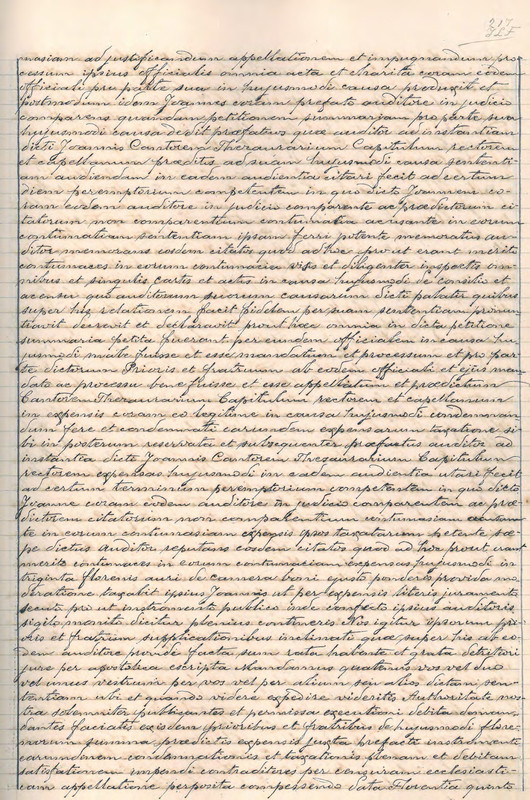 317
masiam ad justificandum appellationem et impugnandum pro
cessum ipsius officialis omnia acta et charita coram eodem
officiali pro parte sua in hujusmodi causa produxit et
postmodum idem Joannes coram prefato auditore in judicio
comparens quandam petitionem summariam pro parte sua
hujusmodi causa dedit præfatus que auditor ad instantiam
dicti Joannis Cantorem Thesaurarium Capitulum rectorem
et capellanum præditis ad suam hujusmodi causa sententi
am audiendam in eadem audientia citari fecit ad certum
diem peremptorium competentem in quo dicto Joannem co
ram eodem auditore in judicio comparente ac prædictorum ci
tatorum non comparentium contumatia accusante in eorum
contumatiam sententiam ipsam ferri petente memoratus au
ditor memorans eosdem citatos quod ad hoc prout erant merito
contumaces in eorum contumacia visis et diligenter inspectis om
nibus et singulis cartis et actis in causa hujusmodi de consilio et
acensu qui auditorum suorum causarum dicti palatii quibus
super his relationem facit fidelem per suam sententiam pronun
tiavit decrevit et declaravit prout hæc omnia in dicta petitione
summaria petita fuerant per eundem officialem in causa hu
jusmodi male fuisse et esse mandatum et processum et pro par
te dictorum Prioris et fratrum ab eodem officiali et ejus man
dato ac processu bene fuisse et esse appellatum et prædictum
Cantorem Thesaurarium Capitulum rectorem et capellanum
in expensis coram eo legitime in causa hujusmodi condemnan
dum fore et condemnatti earundem expensarum taxatione si
bi in posterum reservata et subsequenter præfatus auditor ad
instantia dicto Joannis Cantorem Thesaurarium Capitulum
rectorem expensas hujusmodi in eadem audientia citari fecit
ad certum terminum peremptorium competentem in quo dicto
Joanne coram eodem auditore in judicio comparentem ac præ
dictorem citatorum non comparentium contumasiam accusan
te in eorum contumasiam expensis ipsos taxatarum petente sæ
pe dictus auditor reputans eosdem citatos quod ad hoc prout erant
merito contumaces in eorum contumaciam expensas hujusmodi in
triginta florenis auri de camera boni et justo ponderis provida mo
deratione taxabit ipsius Joannis ut per expensis literis juramento
secuto pro ut instromento publico inde confecto ipsius auditoris
sigilo monito dicitur plenius contineris Nos igitur ipsorum pri
oris et fratrum supplicationibus inclinati quæ super his ab eo
dem auditore proinde facta sum rata habente et grata
jure per apostolica escripta Mandamus quatenus vos vel duo
vel unus vestrum per vos vel per alium seu alios dictam sen
tentiam ubi et quando videre expedire videritis Authoritate nos
tra solemniter publicantes et permissa executioni debita deman
dantes faciatis eisdem prioribus et fratribus de hujusmodi flore
norum summa prædictis expensis juxta prefacti instromenti
earundemem condemnationis et taxationis plenam et debitam
satisfactionem impendi contradictores per censuram eclesiasti
cam appellatione perposita compessendo Data Florentia quinto